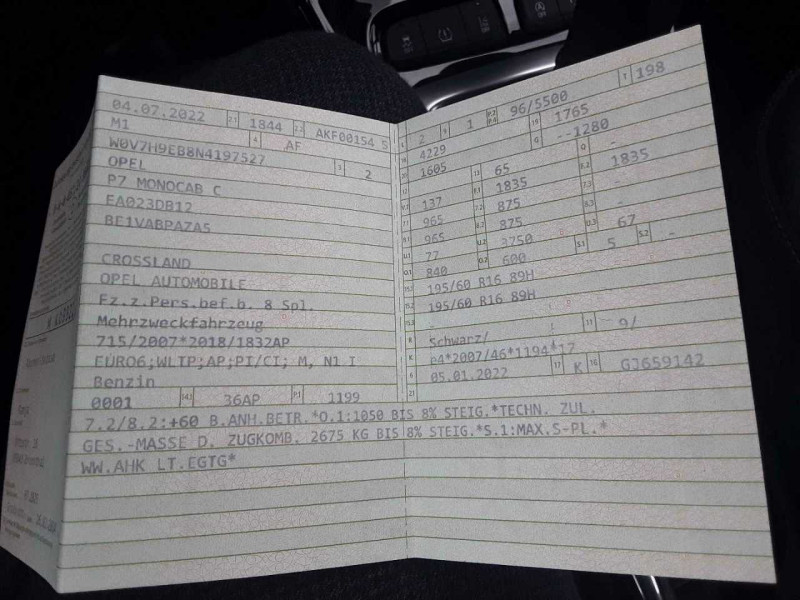 04.07.2022 2.1 1844 2.2 AKF00154 5
M1 4 AF
W0V7H9EB8N4197527 3 2
OPEL
P7 MONOCAB C
EA023DB12
BE1VABPAZA5
CROSSLAND
OPEL AUTOMOBILE
Fz.z.Pers.bef.b. 8 Spl.
Mehrzweckfahrzeug
715/2007*2018/1832AP
EURO6;WLTP;AP;PI/CI; M, N1 I
Benzin
0001 14.1 36AP P.1 1199
L 2 9 1 P.2 P.4 96/5500 T 198
18 4229 19 1765
20 1605 G --1280
12 - 13 65 Q -
V.7 137 F.1 1835 F.2 1835
7.1 965 7.2 875 7.3 -
8.1 965 8.2 875 8.3 -
U.1 77 U.2 3750 U.3 67
O.1 840 O.2 600 S.1 5 S.2 -
15.1 195/60 R16 89H
15.2 195/60 R16 89H
15.3 -
R Schwarz/ 11 9/
K e4*2007/46*1194*17
6 05.01.2022 17 K 16 GJ659142
21
7.2/8.2:+60 B.ANH.BETR.*O.1:1050 BIS 8% STEIG.*TECHN. ZUL.
GES.-MASSE D. ZUGKOMB. 2675 KG BIS 8% STEIG.*S.1:MAX.S-PL.*
WW.AHK LT.EGTG*